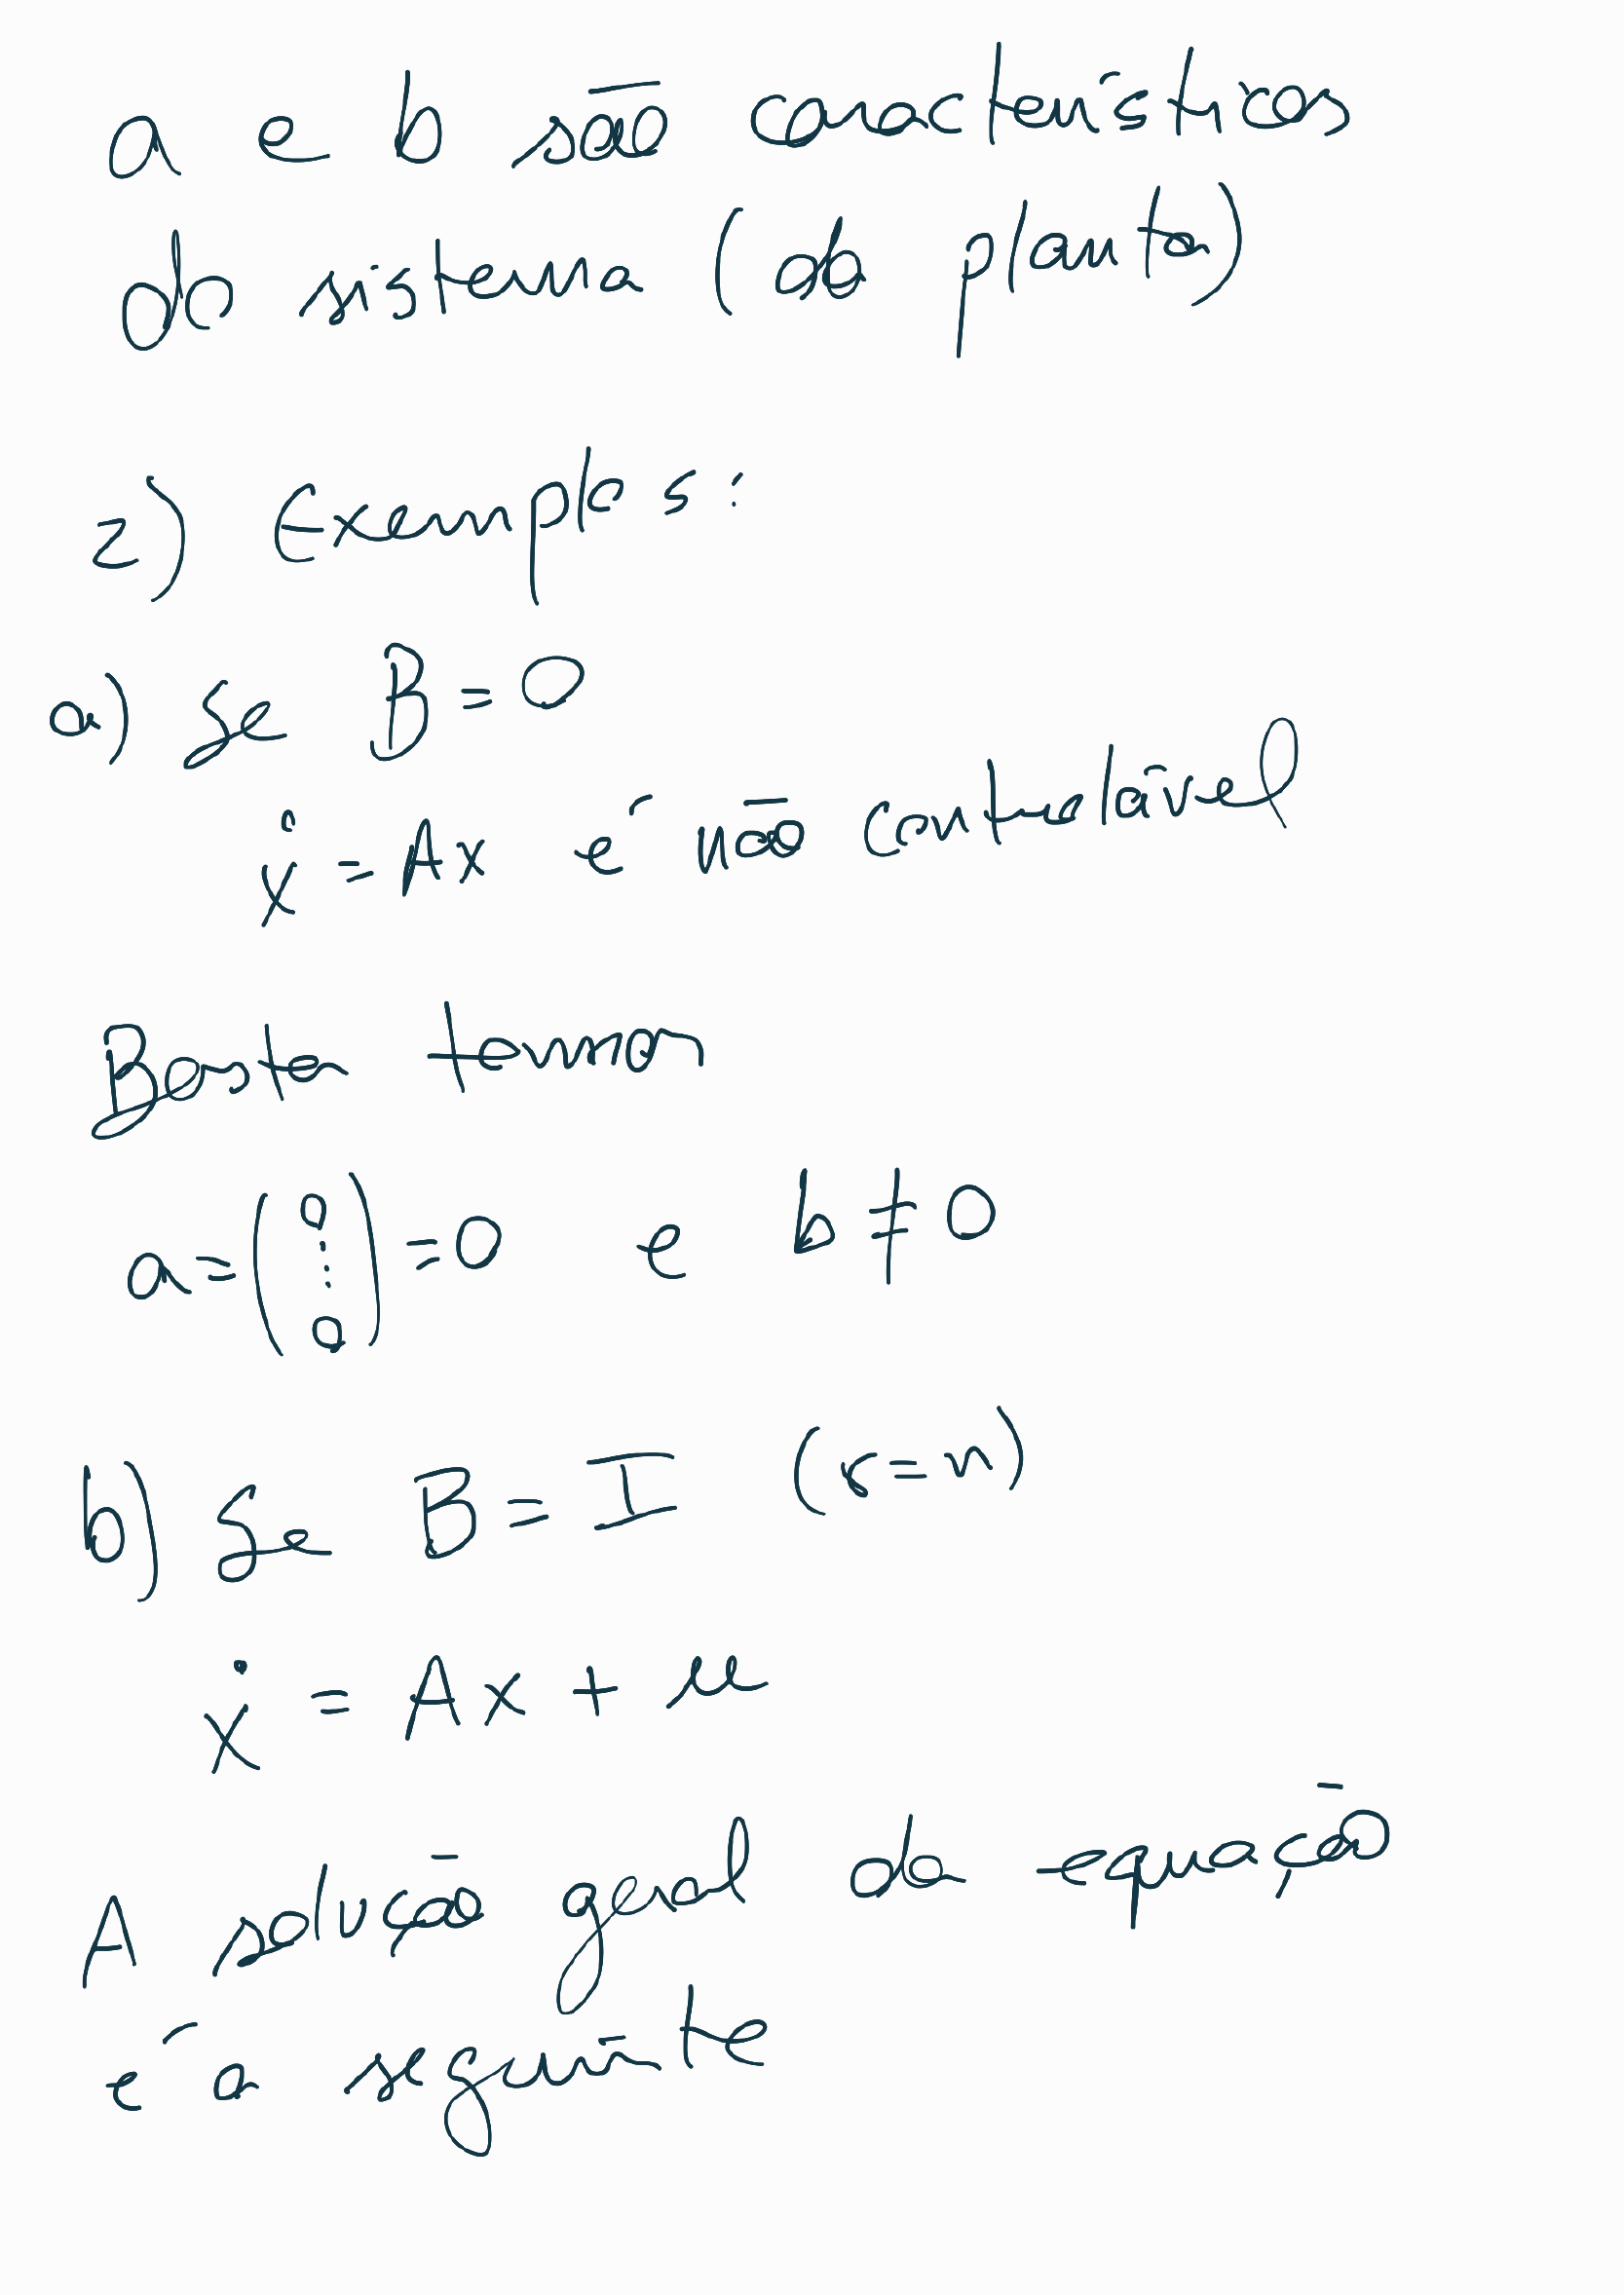 a e b são características
do sistema (da planta)
2) Exemplos:
a) Se B = 0
ẋ = Ax é não controlável
Basta tomar
a = (0 ⋮ 0) = 0 e b ≠ 0
b) Se B = I (s = n)
ẋ = Ax + u
A solução geral da equação
é a seguinte